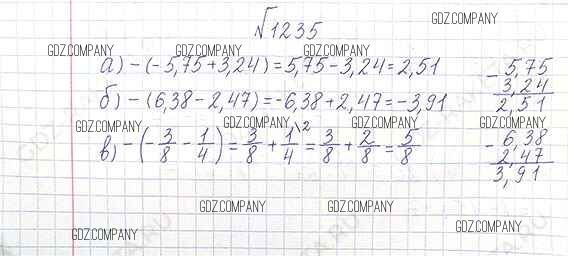 √1235
GDZ.COMPANY
GDZ.COMPANY GDZ.COMPANY GDZ.COMPANY
а) -(-5,75+3,24)=5,75-3,24=2,51
- 5,75
3,24
2,51
б) -(6,38-2,47)=-6,38+2,47=-3,91
GDZ.COMPANY GDZ.COMPANY GDZ.COMPANY GDZ.COMPANY
в) -(-3/8 - 1/4)= 3/8 + 1/4\2 = 3/8 + 2/8 = 5/8
- 6,38
2,47
3,91
GDZ.COMPANY GDZ.COMPANY
GDZ.COMPANY GDZ.COMPANY